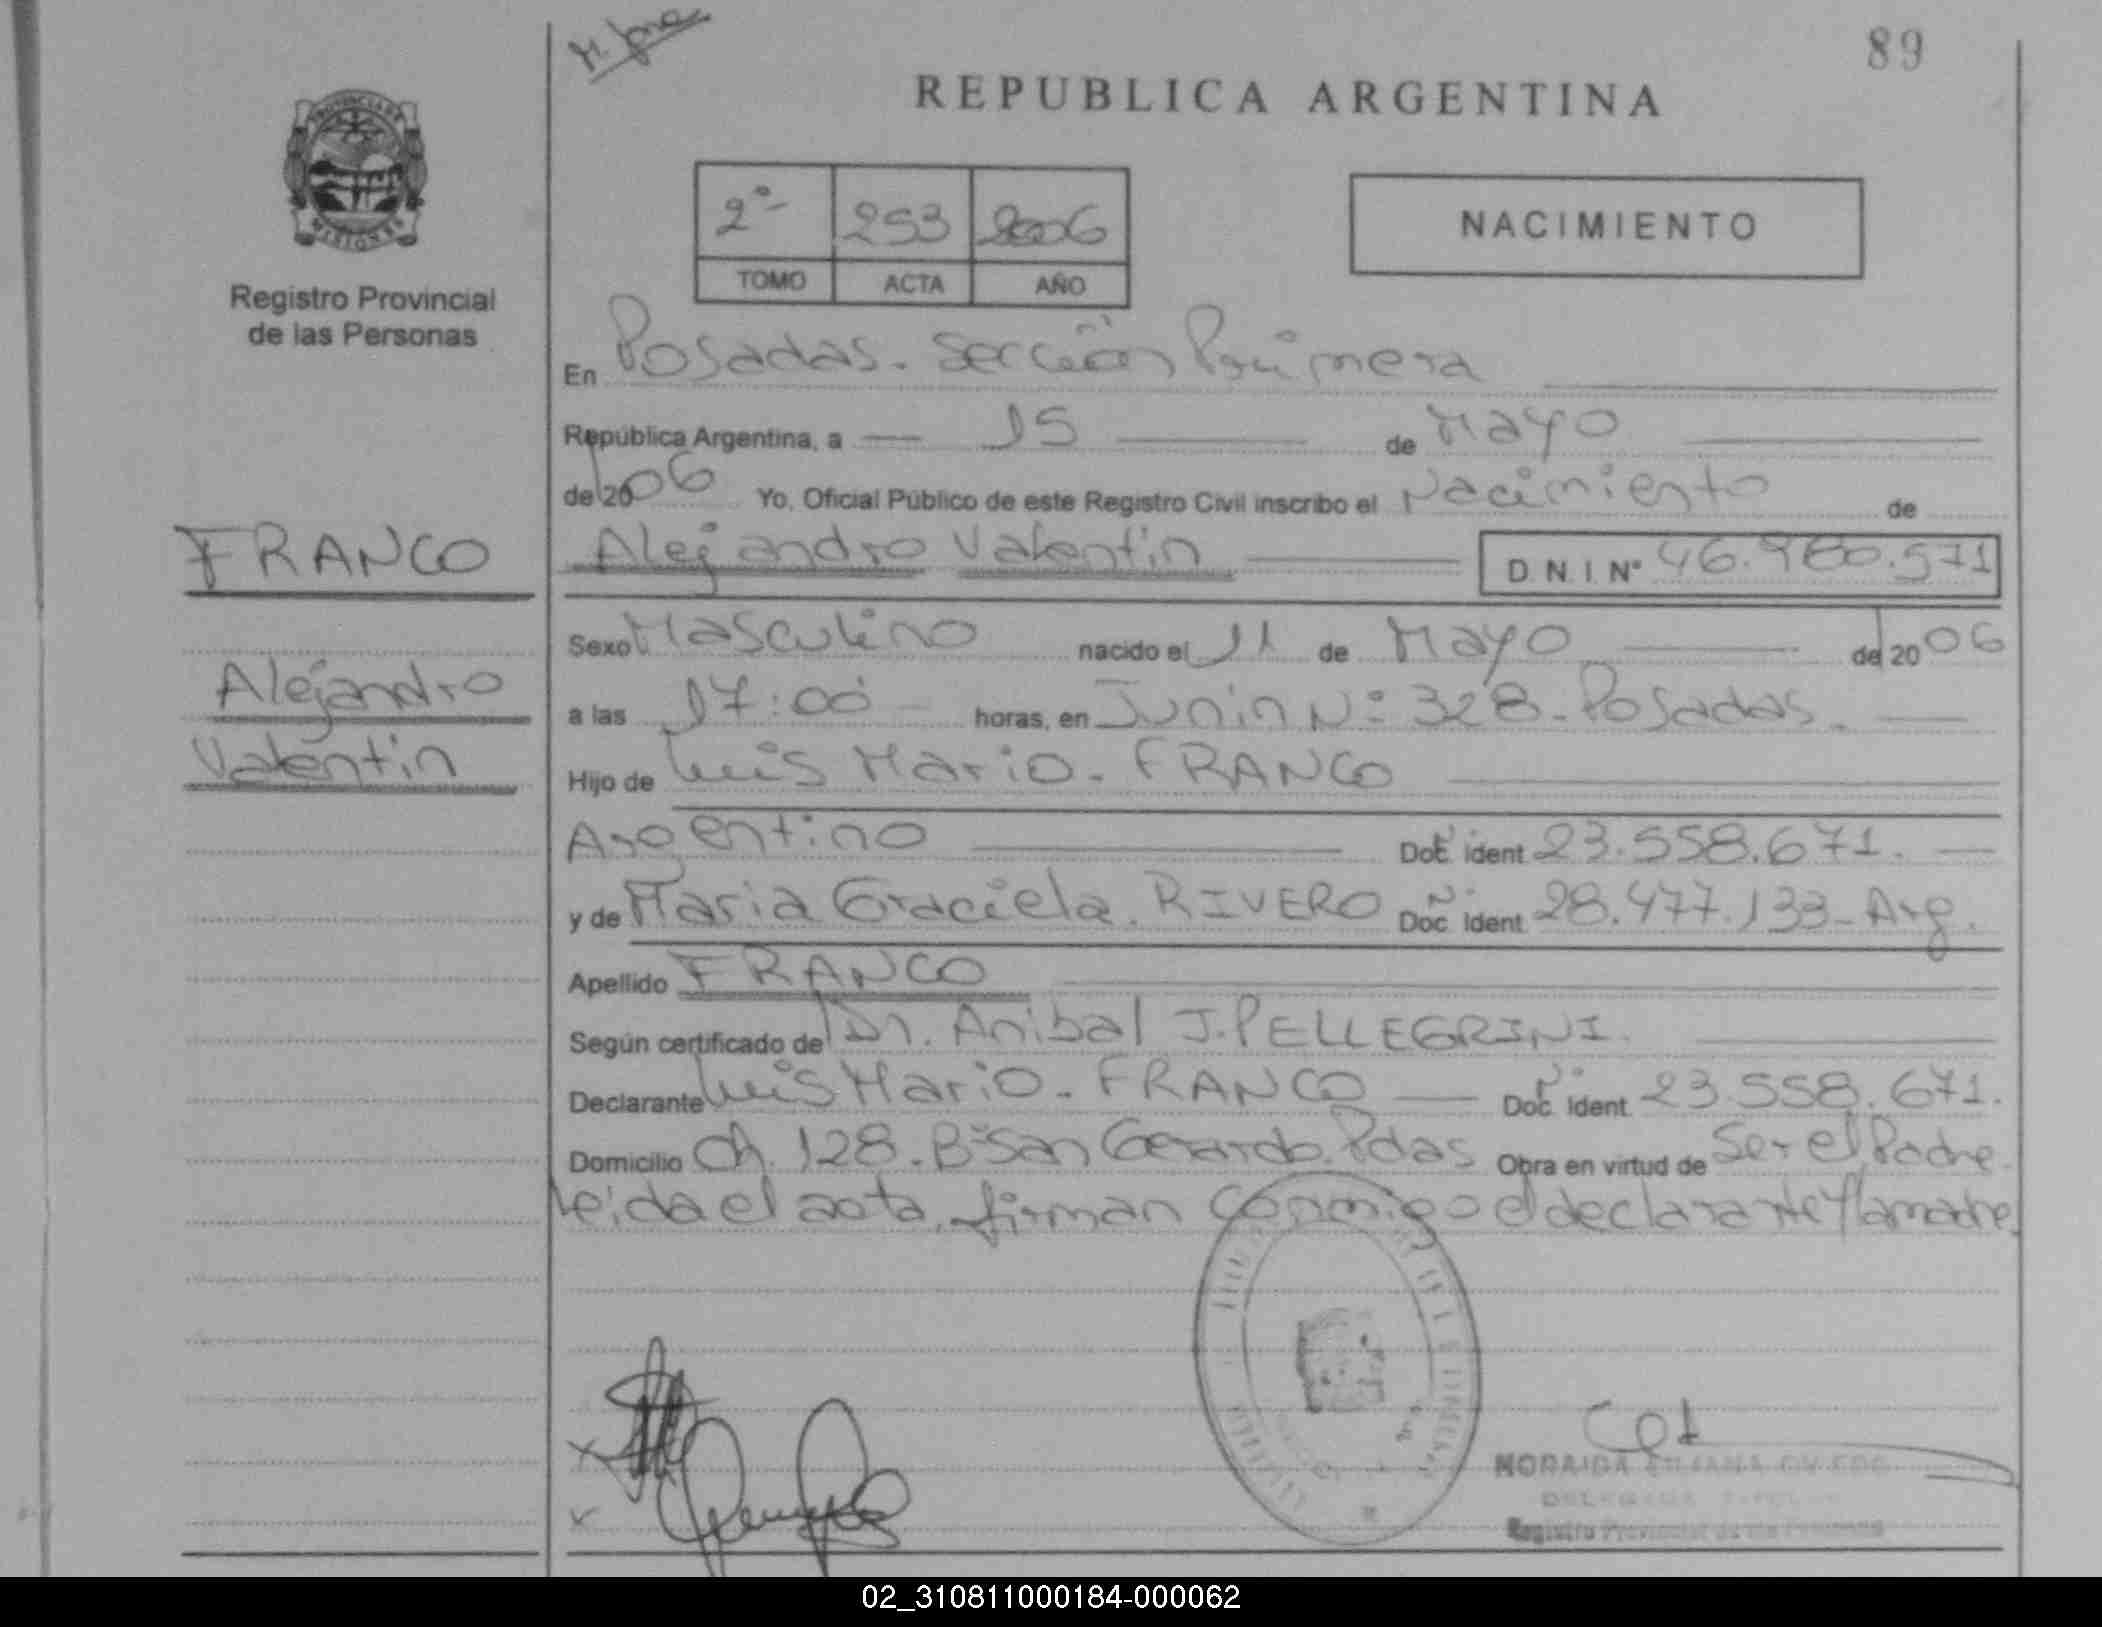 89
REPUBLICA ARGENTINA
PROVINCIA DE
MISIONES
Registro Provincial
de las Personas
2º 253 2006
TOMO ACTA AÑO
NACIMIENTO
En Posadas. Sección Primera
República Argentina, a 15 de Mayo
de 2006 Yo, Oficial Público de este Registro Civil inscribo el Nacimiento de
FRANCO
Alejandro Valentin D.N.I. Nº 46.980.571
Sexo Masculino nacido el 11 de Mayo de 2006
Alejandro
Valentin
a las 17:00 horas, en Junin Nº 328. Posadas.
Hijo de Luis Mario. FRANCO
Argentino Doc. ident 23.558.671.
y de Maria Graciela. RIVERO Doc. Ident. 28.477.133- Arg.
Apellido FRANCO
Según certificado de Dr. Anibal J. PELLEGRINI.
Declarante Luis Mario. FRANCO Doc. Ident. 23.558.671.
Domicilio Ch. 128. Bº San Gerardo. Pdas Obra en virtud de Ser el Padre.
Leida el acta, firman conmigo el declarante y la madre.
Registro Provincial de las Personas
02_310811000184-000062